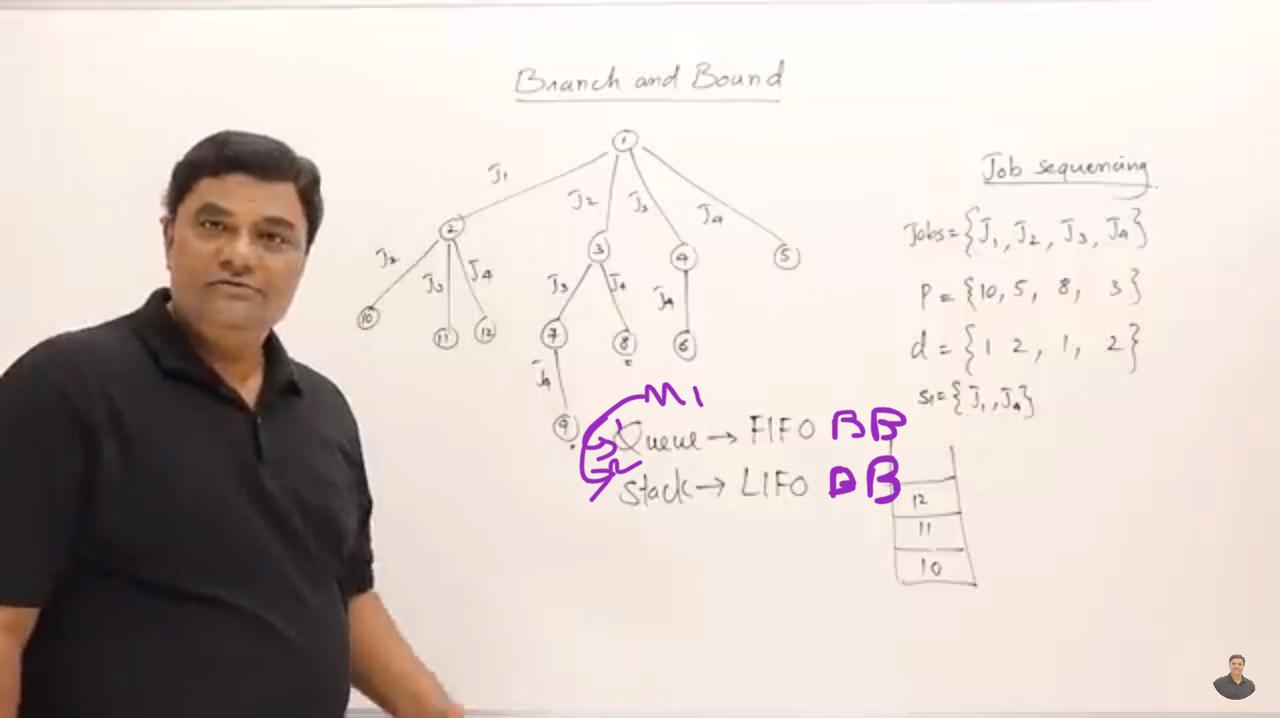 Branch and Bound
1
J1
J2
J3
J4
2
3
4
5
J2
J3
J4
J3
J4
J4
10
11
12
7
8
6
J4
9
M1
Queue → FIFO BB
Stack → LIFO BB
Job sequencing
Jobs = {J1, J2, J3, J4}
P = {10, 5, 8, 3}
d = {1 2, 1, 2}
S1 = {J1, J4}
12
11
10